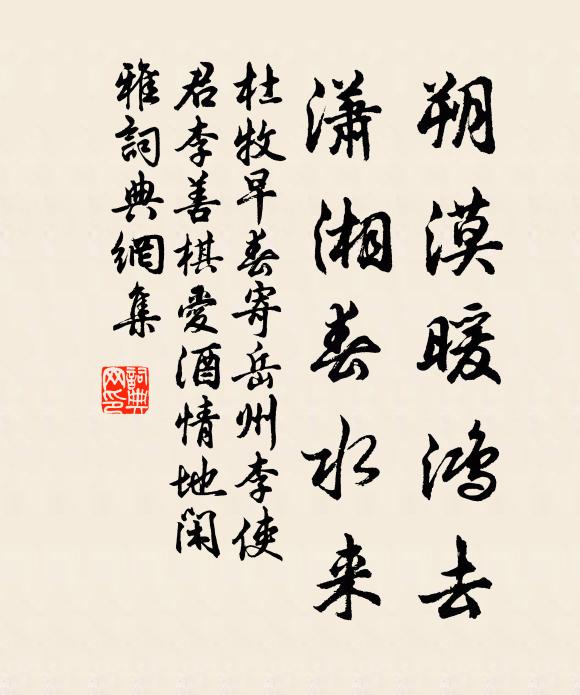 朔漠暖鴻去
瀟湘春水来
杜牧早春寄岳州李使
君李善棋愛酒情地閑
雅詞典網集
詞典
网印